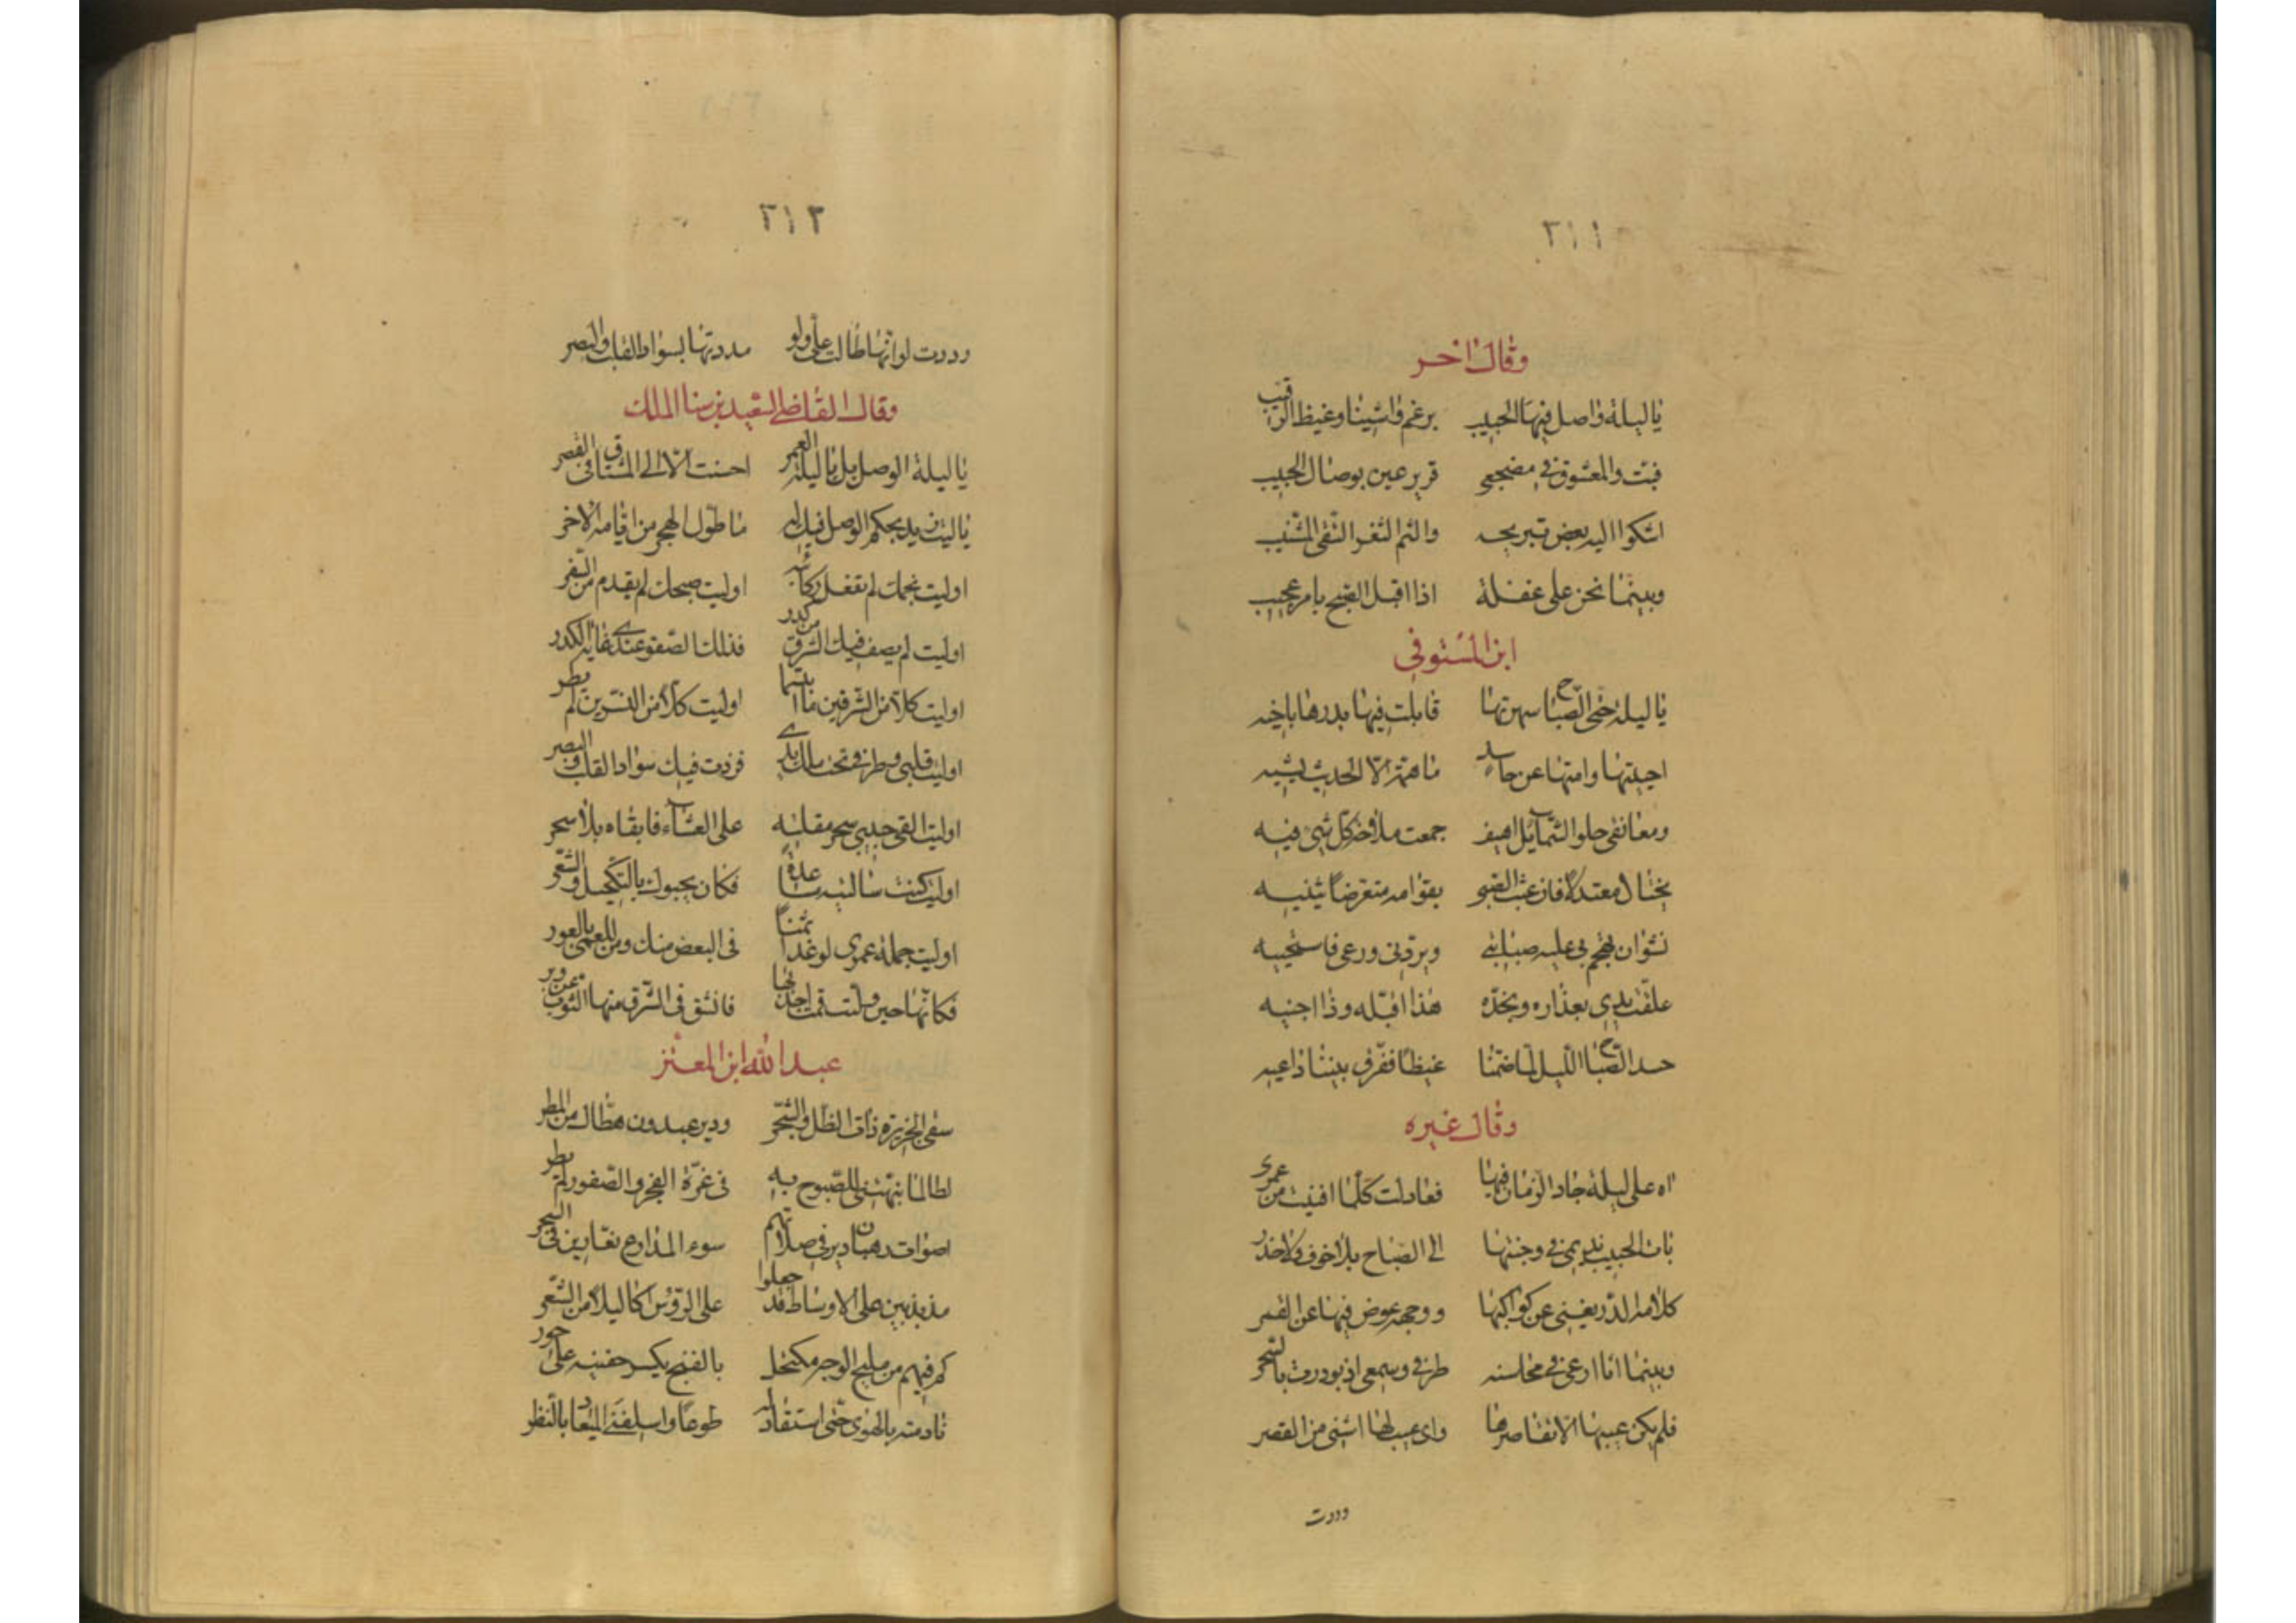 ٢١١
وقال اخر
يا ليلة واصل فيها الحبيب برغم واشينا وغيظ الرقيب
فبت والمعشوق في مضجعي قرير عين بوصال الحبيب
اشكوا اليه بعض تبريحه والثم الثغر النقى الشنيب
وبينما نحن على غفلة اذا اقبل الصبح بامر عجيب
ابن المستوفى
يا ليلة حتى الصباح سهرتها قابلت فيها بدرها باخيه
احييتها وامتها عن حاسد ما همه الا الحديث يشيه
ومعانقى حلو الشمائل اهيف جمعت ملاحة كل شئ فيه
يختال معتدلا فان عبث الصبى بقوامه متعرضا يثنيه
نشوان يهجم بى عليه صبابتى ويردنى ورعى فاستحييه
علقت يدى بعذاره وبخده هذا اقبله وذا اجنيه
حسد الصباح الليل لما ضمنا غيظا ففرق بيننا داعيه
وقال غيره
اه على ليلة جاد الزمان فيها فعادلت كلما افنيت من عمرى
بات الحبيب نديمى في وجنتها الى الصباح بلا خوف ولا حذر
كلامه الدر يغنى عن كواكبها ووجهه عوض فيها عن القمر
وبينما انا ارعى في محاسنه طرفى وسمعى اذ بودرت بالسحر
فلم يكن عيبها الا تقاصرها واى عيب لها اشنى من القصر
وددت
٢١٢
وددت لو انها طالت على ولو مددتها بسواد القلب والبصر
وقال القاضى السعيد بن سنا الملك
يا ليلة الوصل بل يا ليلة العمر احسنت الا الى المشتاق في القصر
يا ليت زيد بحكم الوصل فيك له ما طول الهجر من ايامه الاخر
اوليت نجمك لم تقفل ركائبه اوليت صبحك لم يقدم من السفر
اوليت لم يصف فيك الشرق من كدر فذلك الصفو عندى غاية الكدر
اوليت كلا من الشرقين ما ابتسما اوليت كلا من النسرين لم يطر
اوليت قلبى وطرفى تحت ملك يدى فزدت فيك سواد القلب والبصر
اوليت القى حبيبى سحر مقلته على العشاء فابقاه بلا سحر
اوليت كنت سالتيه مساعدة فكان يحبوك بالتكحيل والشعر
اوليت جملة عمرى لو غدا ثمنا فى البعض منك ومن للعمى بالعور
فكانها حين ولت قمت اجذبها فانشق فى الشرق منها الثوب عن دبر
عبد الله ابن المعتز
سقى الجزيرة ذات الظل والشجر ودير عبدون هطال من المطر
لطالما نبهتنى للصبوح به فى غرة الفجر والعصفور لم يطر
اصوات رهبان دير فى صلاتهم سود المدارع نعارين فى السحر
مذبذبين على الاوساط قد جعلوا على الرؤس اكاليلا من الشعر
كم فيهم من مليح الوجه مكتحل بالغنج يكسر جفنيه على حور
نادمته بالهوى حتى استقاد له طوعا واسلفنى الميعاد بالنظر